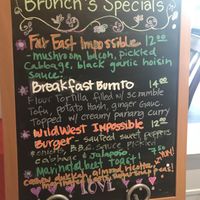 Brunch's Specials
Far East Impossible 12.00
- mushroom bacon, pickled
cabbage, black garlic hoisin
sauce.
Breakfast Burrito 14.00
Flour Tortilla filled w/ scramble
Tofu, potato hash, ginger
Topped w/ creamy curry
Wild West Impossible 12.00
Burger - sauteed sweet peppers
BBQ sauce pickled
cabbage & Jalapeno
Marinated beet Toast!
dukkah, almond ricotta